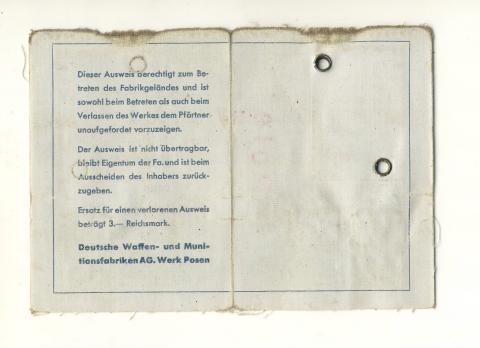 Dieser Ausweis berechtigt zum Be-
treten des Fabrikgeländes und ist
sowohl beim Betreten als auch beim
Verlassen des Werkes dem Pförtner
unaufgefordert vorzuzeigen.
Der Ausweis ist nicht übertragbar,
bleibt Eigentum der Fa. und ist beim
Ausscheiden des Inhabers zurück-
zugeben.
Ersatz für einen verlorenen Ausweis
beträgt 3.— Reichsmark.
Deutsche Waffen- und Muni-
tionsfabriken AG. Werk Posen